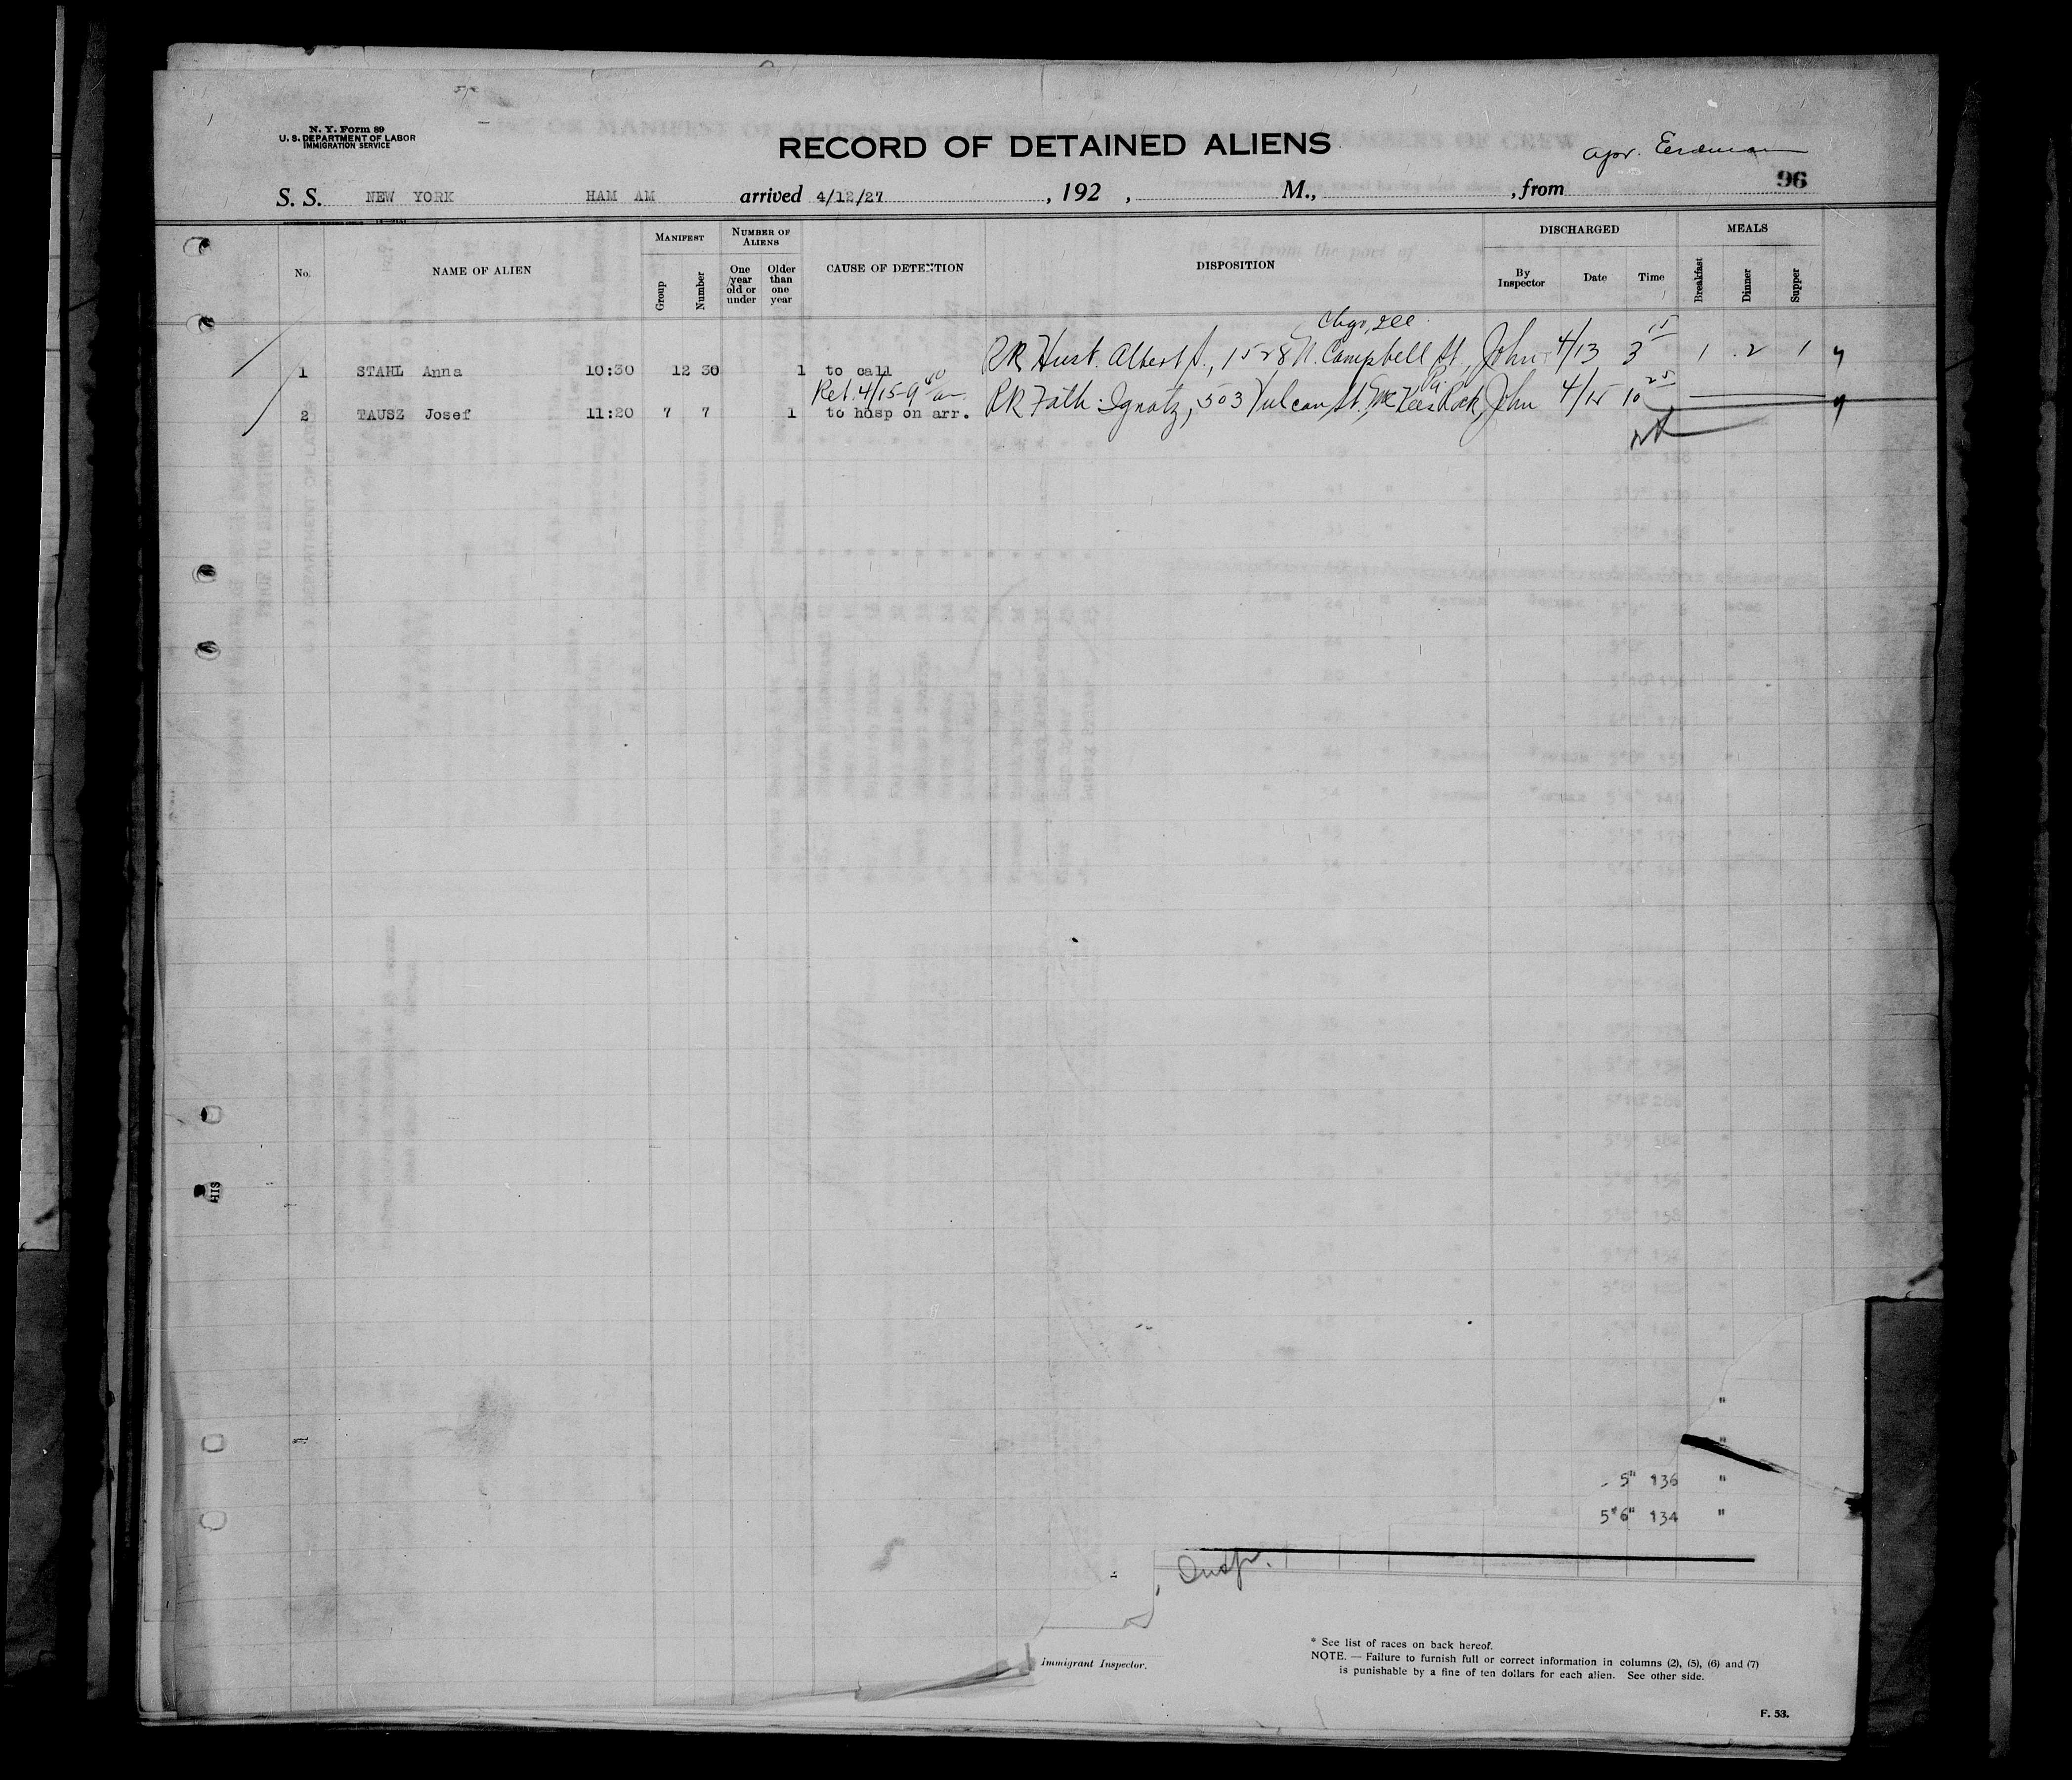 N. Y. Form 89
U. S. DEPARTMENT OF LABOR
IMMIGRATION SERVICE
RECORD OF DETAINED ALIENS
Apr. Eerdman
96
S. S. NEW YORK HAM AM arrived 4/12/27, 192 , M., , from
No. NAME OF ALIEN MANIFEST Group Number NUMBER OF ALIENS One year old or under Older than one year CAUSE OF DETENTION DISPOSITION DISCHARGED By Inspector Date Time MEALS Breakfast Dinner Supper
Chgo, Ill
1 STAHL Anna 10:30 12 30 1 to call RR Husb. Albert S., 1528 N. Campbell St., John 4/13 3 15 1 2 1
Ret. 4/15-9 40 am Pa.
2 TAUSZ Josef 11:20 7 7 1 to hosp on arr. RR Fath. Ignatz, 503 Vulcan St., McKees Rock, John 4/15 10 25
5" 136 "
5"6" 134 "
Insp.
Immigrant Inspector.
* See list of races on back hereof.
NOTE. — Failure to furnish full or correct information in columns (2), (5), (6) and (7)
is punishable by a fine of ten dollars for each alien. See other side.
F. 53.